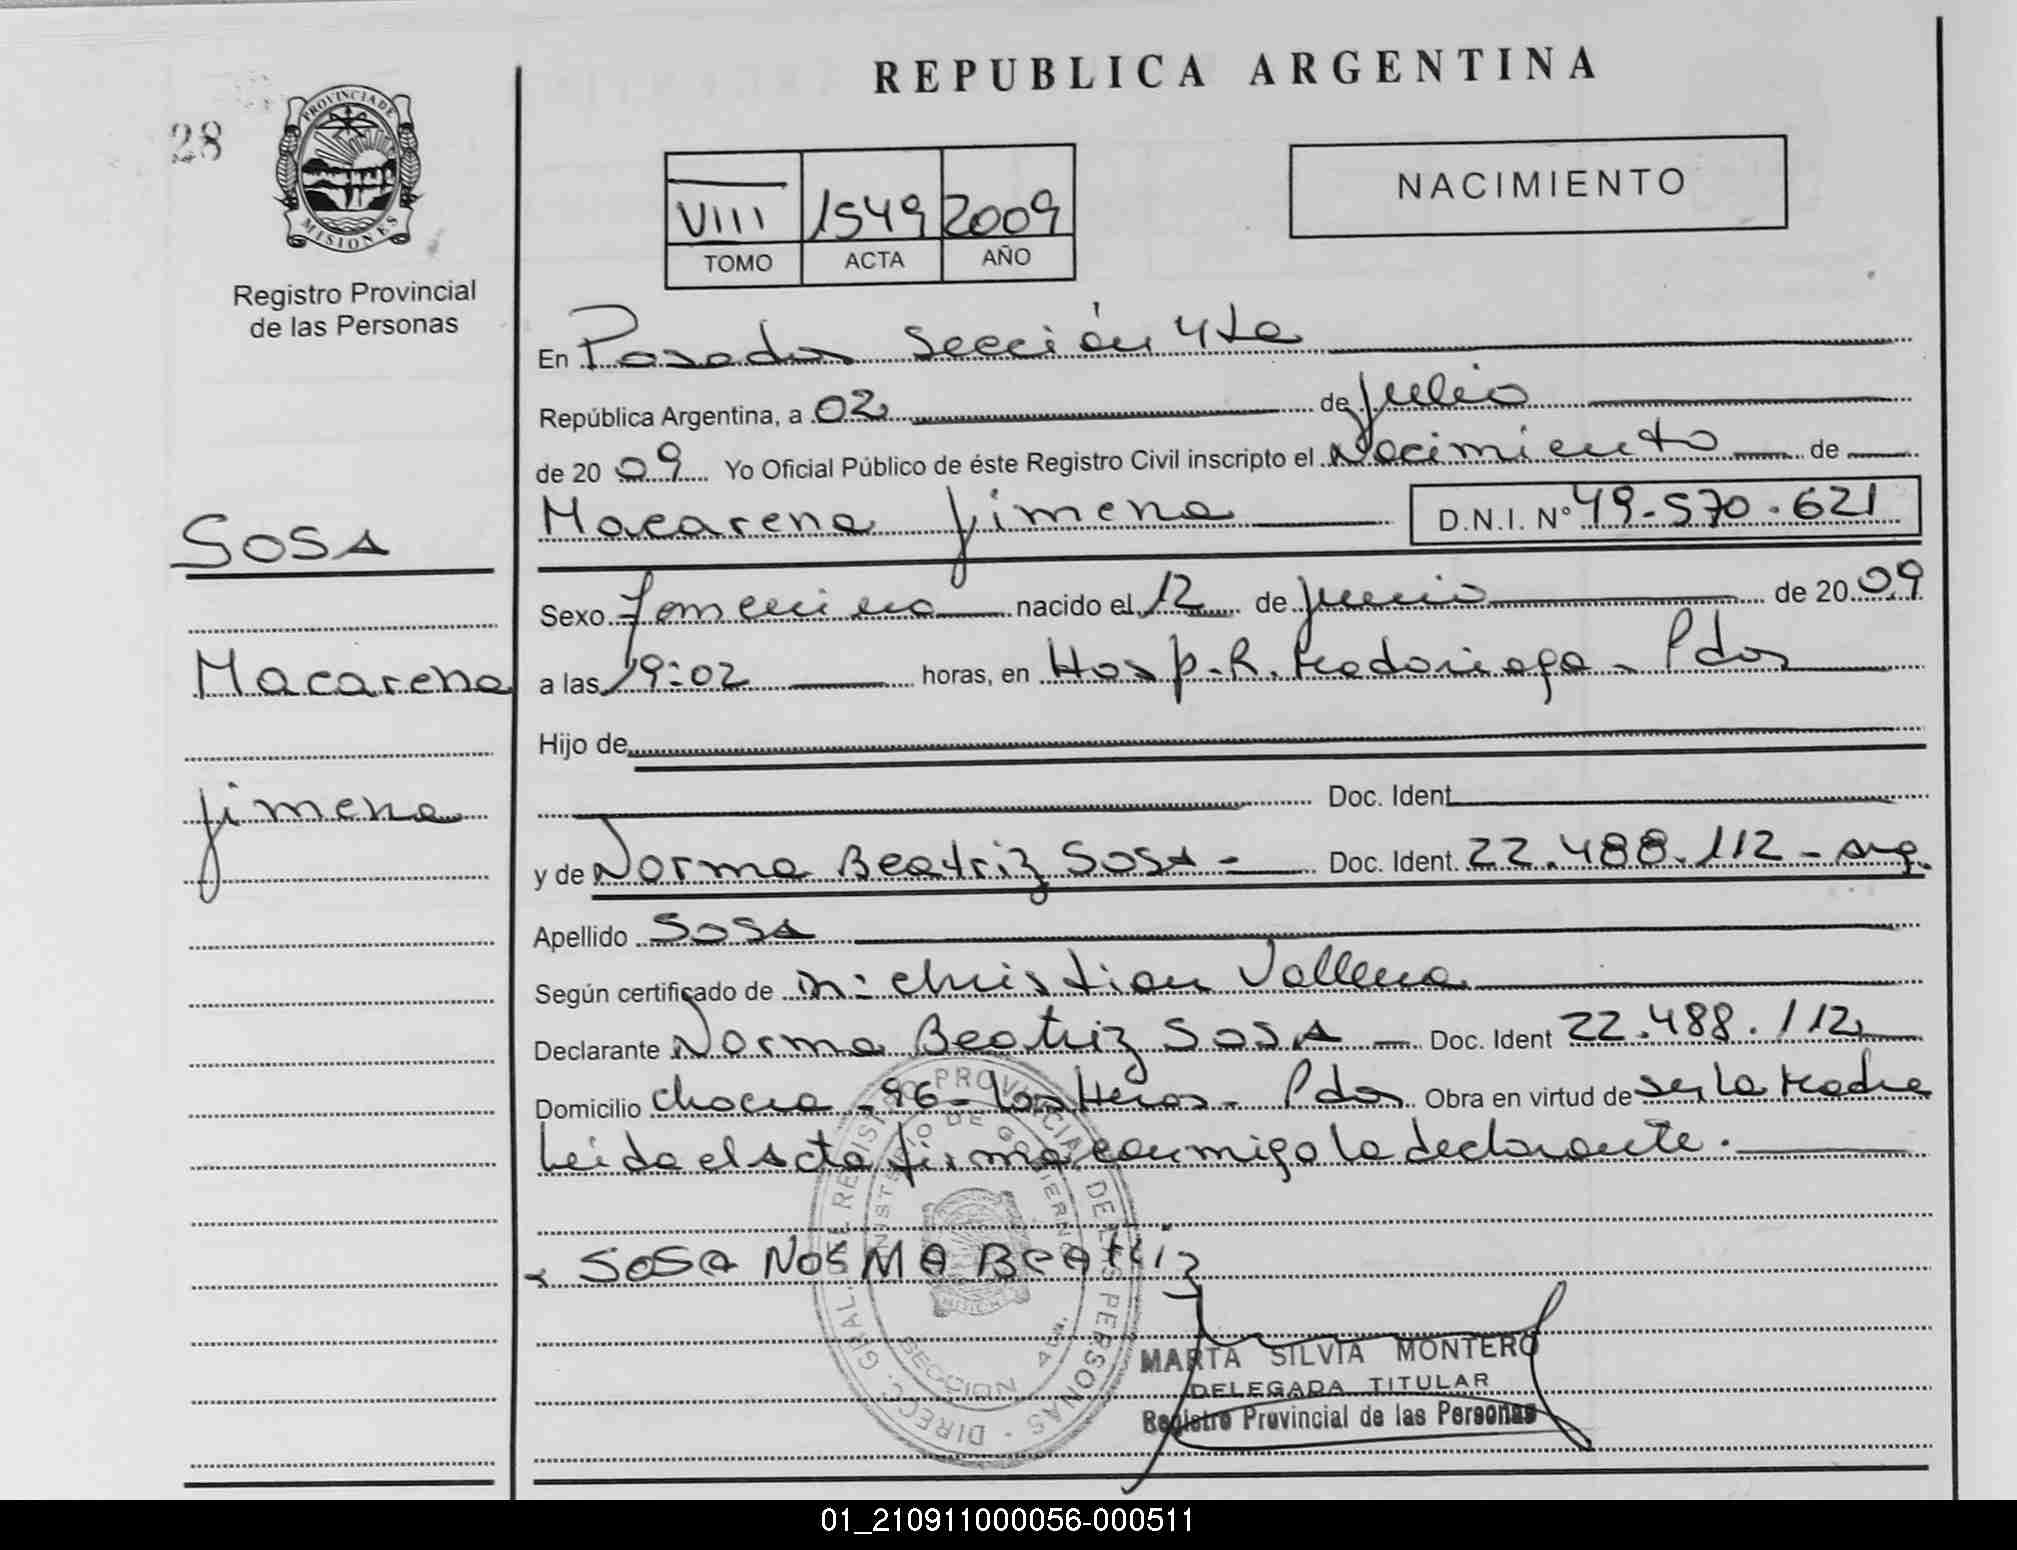 REPUBLICA ARGENTINA
28
PROVINCIA DE
MISIONES
Registro Provincial
de las Personas
VIII 1549 2009
TOMO ACTA AÑO
NACIMIENTO
En Posadas Sección 4ta
República Argentina, a 02 de Julio
de 20 09 Yo Oficial Público de éste Registro Civil inscripto el Nacimiento de
Macarena Jimena D.N.I. Nº 49.570.621
SOSA
Macarena
Jimena
Sexo Femenino nacido el 12 de Junio de 20 09
a las 19:02 horas, en Hosp. R. Madariaga - Pdas
Hijo de
Doc. Ident
y de Norma Beatriz SOSA - Doc. Ident. 22.488.112 - arg.
Apellido SOSA
Según certificado de Christian Vallena
Declarante Norma Beatriz SOSA Doc. Ident 22.488.112
Domicilio Chacra - 96 - Pdas Obra en virtud de ser la Madre
Leida el Acta firma conmigo la declarante.
SOSA NORMA BEATRIZ
DIREC. GRAL. DE REGISTRO PROVINCIAL DE LAS PERSONAS
MINISTERIO DE GOBIERNO
SECCION 4ta.
MARTA SILVIA MONTERO
DELEGADA TITULAR
Registro Provincial de las Personas
01_210911000056-000511